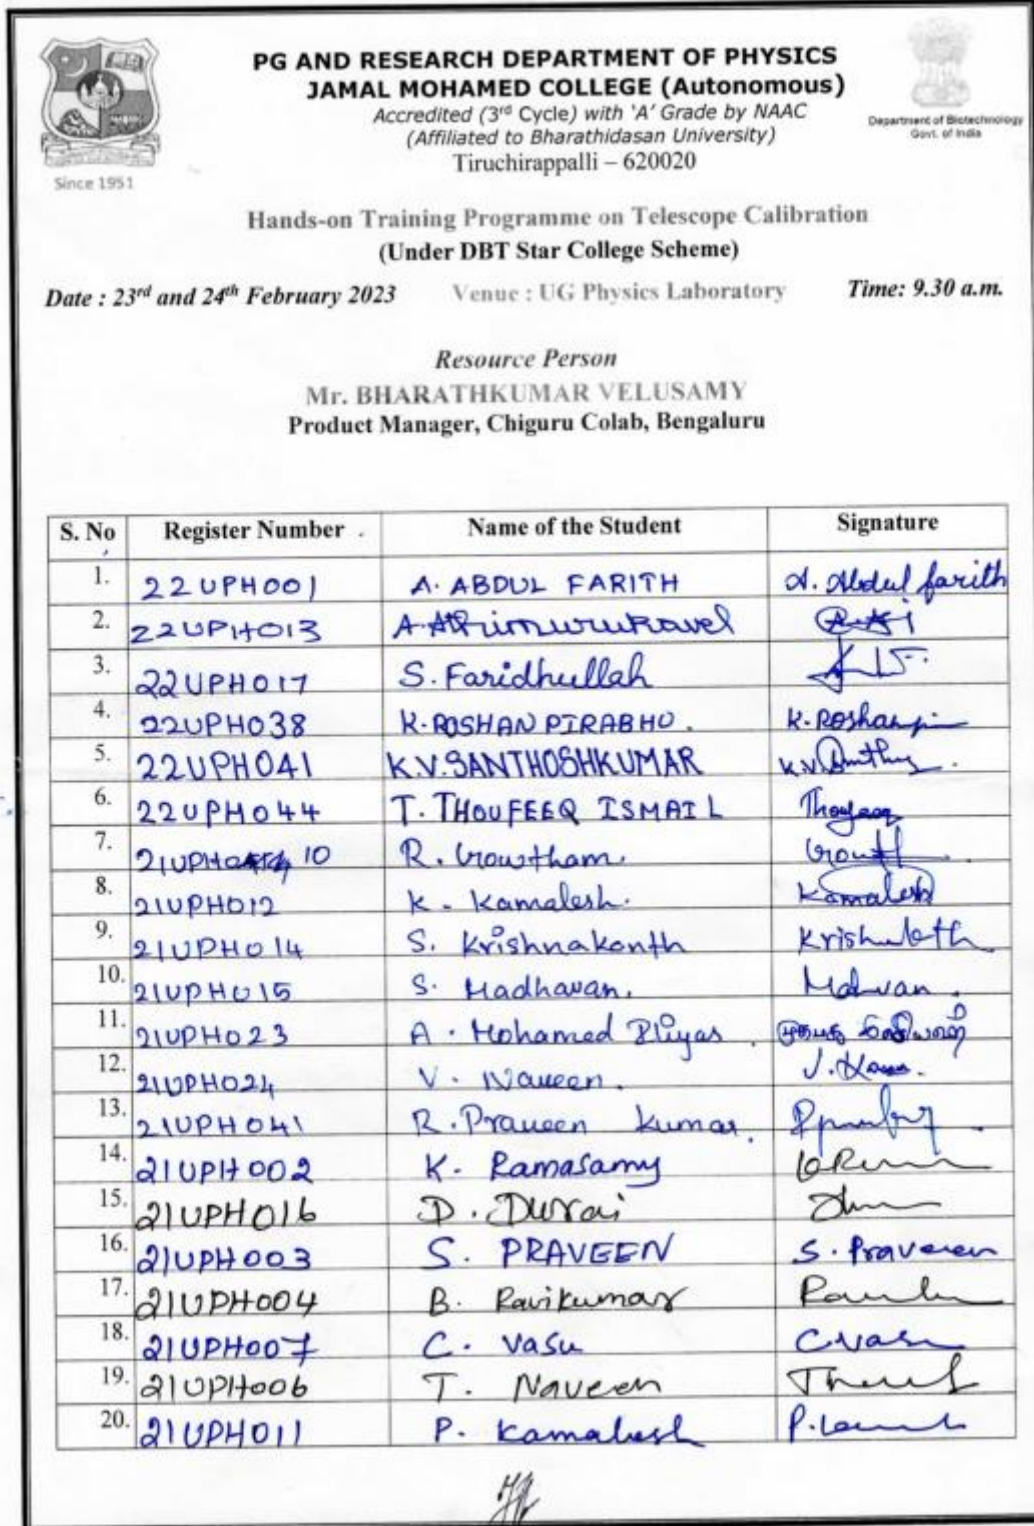 PG AND RESEARCH DEPARTMENT OF PHYSICS
JAMAL MOHAMED COLLEGE (Autonomous)
Accredited (3rd Cycle) with 'A' Grade by NAAC
(Affiliated to Bharathidasan University)
Tiruchirappalli – 620020
Since 1951
Department of Biotechnology
Govt. of India
Hands-on Training Programme on Telescope Calibration
(Under DBT Star College Scheme)
Date : 23rd and 24th February 2023 Venue : UG Physics Laboratory Time: 9.30 a.m.
Resource Person
Mr. BHARATHKUMAR VELUSAMY
Product Manager, Chiguru Colab, Bengaluru
S. No Register Number Name of the Student Signature
1. 22UPH001 A. ABDUL FARITH A. Abdul farith
2. 22UPH013 A.
3. 22UPH017 S. Faridhullah
4. 22UPH038 K. ROSHAN PIRABHO. K. Roshan
5. 22UPH041 K.V. SANTHOSHKUMAR K.V.
6. 22UPH044 T. THOUFEEQ ISMAIL
7. 21UPH 10 R. Gowtham.
8. 21UPH012 K. Kamalesh. Kamalesh
9. 21UPH014 S. Krishnakanth
10. 21UPH015 S. Madhavan.
11. 21UPH023 A. Mohamed Iliyas
12. 21UPH024 V. Naveen.
13. 21UPH041 R. Praveen Kumar.
14. 21UPH002 K. Ramasamy
15. 21UPH016 D. Durai
16. 21UPH003 S. PRAVEEN S. Praveen
17. 21UPH004 B. Ravikumar
18. 21UPH007 C. Vasu C Vasu
19. 21UPH006 T. Naveen
20. 21UPH011 P. Kamalesh